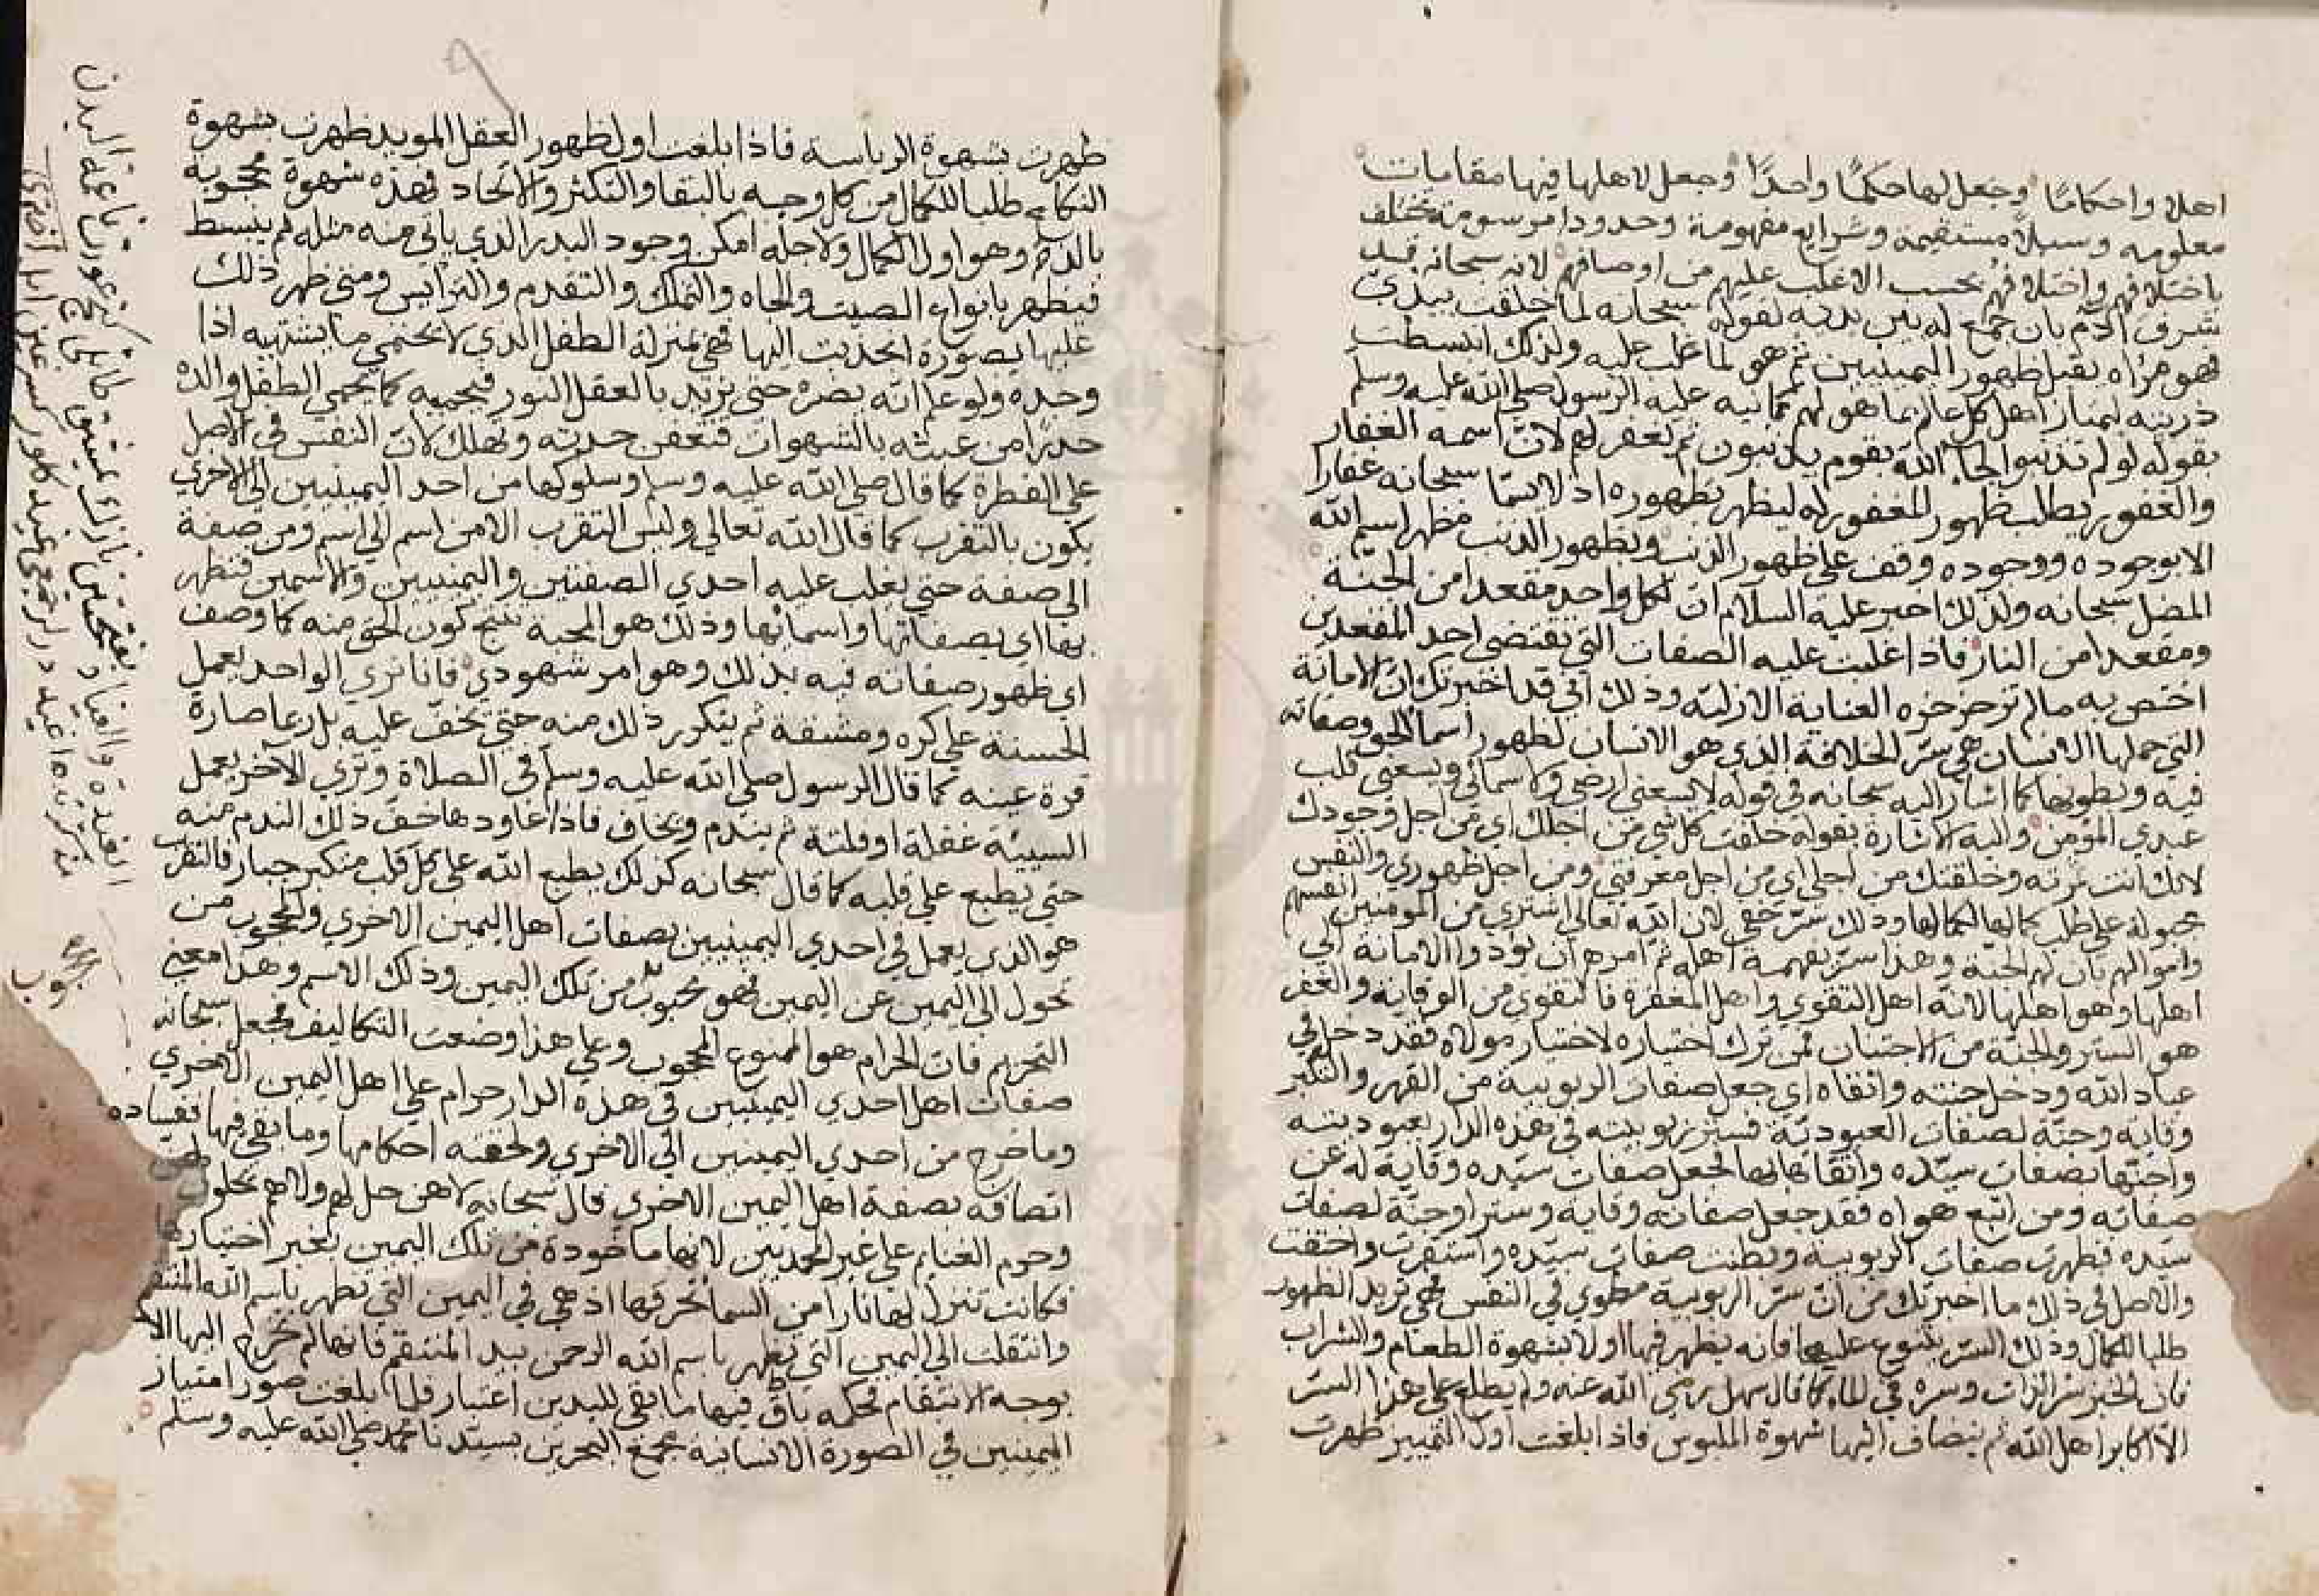 اهلا واحكامًا وجعل لها حكمًا واحدًا وجعل لاهلها فيها مقامات
معلومه وسبلاً مستقيمة وشرايع مفهومة وحدودا مرسومة تختلف
باختلافهم واختلافهم بحسب الاغلب عليهم من اوصافهم لانه سبحانه قد
شرف آدم بان جمع له بين يديه لقوله سبحانه لما خلقت بيديّ
فهو مرآه يقبل ظهور اليمينين ثم هو لما غلب عليه ولذلك انبسطت
ذريته ليمتاز اهل كل عالم بما هو لهم كما نبه عليه الرسول صلى الله عليه وسلم
بقوله لو لم تذنبوا لجاء الله بقوم يذنبون ثم يغفر لهم لان اسمه الغفار
والغفور يطلب ظهور المغفور له ليظهر بظهوره اذ لا يسما سبحانه غفارا
الا بوجوده ووجوده وقف على ظهور الذنب وبظهور الذنب مظهر اسم الله
المضل سبحانه ولذلك اخبر عليه السلام ان لكل واحد مقعدا من الجنة
ومقعدا من النار فاذا غلبت عليه الصفات التي تقتضي احد المقعدين
اختص به ما لم تزحزحه العناية الازلية وذلك اني قد اخبرتك ان الامانة
التي حملها الانسان هي سر الخلافة الذي هو الانسان لظهور اسما الحق وصفاته
فيه وبطونها كما اشار اليه سبحانه في قوله لا يسعني ارضي ولا سمائي ويسعني قلب
عبدي المؤمن واليه الاشارة بقوله خلقت كل شي من اجلك اي من اجل وجودك
لانك انت ثمرته وخلقتك من اجلي اي من اجل معرفتي ومن اجل ظهوري والنفس
مجبولة على طلب كمالها لكمالها وذلك سر خفي لان الله تعالى اشترى من المومنين انفسهم
واموالهم بان لهم الجنة وهذا سر يفهمه اهله ثم امرهم ان يؤدوا الامانة الى
اهلها وهو اهلها لانه اهل التقوى واهل المغفرة فالتقوى من الوقاية والغفر
هو الستر والجنة من الاجتنان فمن ترك اختياره لاختيار مولاه فقد دخل في
عباد الله ودخل جنته واتقاه اي جعل صفات الربوبية من القهر والتكبر
وقاية وجنّة لصفات العبوديّة فستر ربوبيته في هذه الدار بعبوديته
واجنها بصفات سيّده واتقا بها لجعل صفات سيّده وقاية له عن
صفاته ومن اتبع هواه فقد جعل صفاته وقاية وسترا وجنّة لصفات
سيّده فظهرت صفات الربوبية وبطنت صفات سيّده واستقرت واختفت
والاصل في ذلك ما اخبرتك من ان سرّ الربوبية مطوي في النفس فهي تريد الظهور
طلبا للكمال وذلك السر يتنوع عليها فانه يظهر فيها اولا بشهوة الطعام والشراب
فان الخبز سر الذات وسره في الماء كما قال سهل رضي الله عنه ولم يطلع على هذا السرّ
الا اكابر اهل الله ثم ينضاف اليها شهوة الملبوس فاذا بلغت اول التمييز ظهرت
ظهرت بشهوة الرياسة فاذا بلغت اول ظهور العقل المويد ظهرت بشهوة
النكاح طلبا للكمال من كل وجه بالبقا والتكثر والاتحاد فهذه شهوة محجوبة
بالدم وهو اول الكمال ولاجله امكن وجود البدر الذي ياتي منه مثله ثم يبسط
فيظهر بانواع الصيت والجاه والتملك والتقدم والترايس ومتى ظهر ذلك
عليها بصورة انجذبت اليها فهي بمنزلة الطفل الذي لا يحتمي ما يشتهيه اذا
وجده ولو علم انه يضره حتى يزيد بالعقل النور فيحميه كما يحمي الطفل والده
حذرًا من عبثه بالشهوات فتعفن جدته وتهلك لان النفس في الاصل
على الفطرة كما قال صلى الله عليه وسلم وسلوكها من احد اليمينين الى الاخرى
يكون بالتقرب كما قال الله تعالى وليس التقرب الا من اسم الى اسم ومن صفة
الى صفة حتى يغلب عليه احدي الصفتين واليمنيين والاسمين فتظهر
بها اي بصفاتها واسمائها وذلك هو المحبة ينتج كون الحق منه كما وصف
اي ظهور صفاته فيه بذلك وهو امر شهودي فانا نرى الواحد يعمل
الحسنة على كره ومشقة ثم يتكرر ذلك منه حتى يخفّ عليه بل ربما صارة
قرة عينه كما قال الرسول صلى الله عليه وسلم في الصلاة وتري الآخر يعمل
السيئة غفلة او فلتة ثم يندم ويخاف فاذا عاودها خف ذلك الندم منه
حتى يطبع على قلبه كما قال سبحانه كذلك يطبع الله على كل قلب متكبر جبار فالتقرب
هو الذي يعمل في احدي اليمينين بصفات اهل اليمين الاخرى والمحجوب من
تحول الى اليمين عن اليمين فهو محجوب من تلك اليمين وذلك الاسم وهذا معنى
التحريم فان الحرام هو الممنوع المحجوب وعلى هذا وضعت التكاليف فجعل سبحانه
صفات اهل احدي اليمينين في هذه الدار حرام على اهل اليمين الاخري
وما خرج من احدي اليمينين الى الاخري ولحقته احكامها وما بقي فيها
اتصافه بصفة اهل اليمين الاخري قال سبحانه لا هن حل لهم ولا هم يحلون
وحرم الغنايم على غير المحمديين لانها ماخوذة من تلك اليمين بغير اختيارها
فكانت تنزل لها نارا من السما تحرقها اذ هي في اليمين التي تظهر باسم الله المنتقم
وانتقلت الى اليمين التي تظهر باسم الله الرحمن بيد المنتقم فانها لم تخرج اليها الا
بوجه الانتقام فحكمه باق فيها ما بقي لليدين اعتبار فلما بلغت صور امتياز
اليمينين في الصورة الانسانية مجمع البحرين بسيّدنا محمد صلى الله عليه وسلم